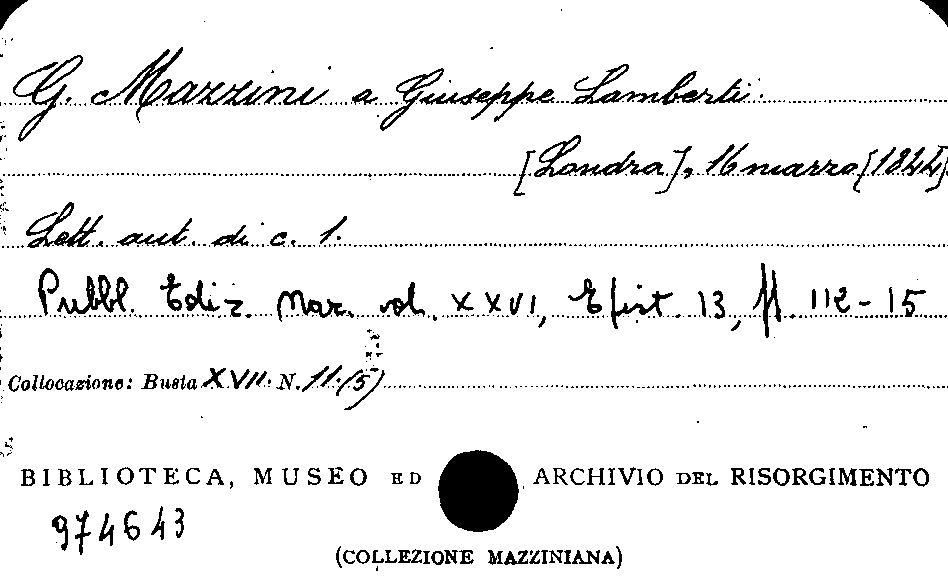 G. Mazzini a Giuseppe Lamberti.
[Londra], 16 marzo [1844].
Lett. aut. di c. 1.
Pubbl. Ediz. Naz. vol. XXVI, Epist. 13, pp. 112-15
Collocazione: Busta XVII. N. 11.(5)
BIBLIOTECA, MUSEO ED ARCHIVIO DEL RISORGIMENTO
974643
(COLLEZIONE MAZZINIANA)